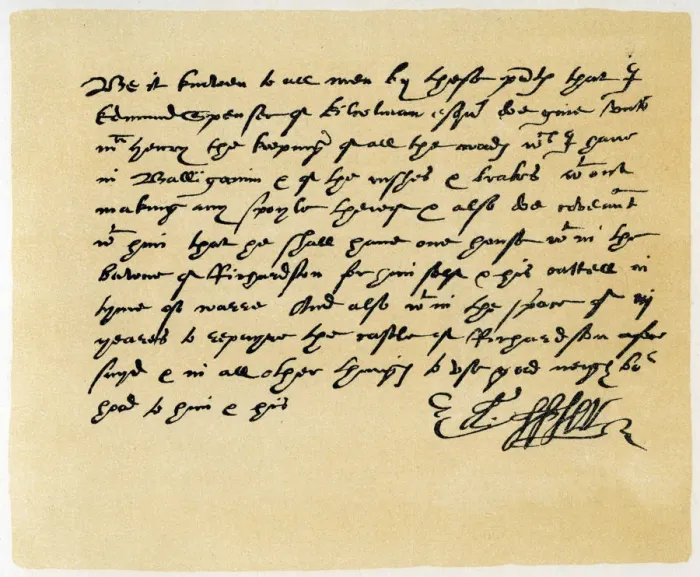 Be it knowen to all men by these p̄nts that I
Edmund Spenser of Kilcolman esqr doe giue vnto
mr Henry the keeping of all the woods wch I haue
in Balliganim & of the rushes & brakes wthout
making any spoyle therof & also doe covenāt
wth him that he shall haue one house wthin the
bawne of Richardston for him self & his cattell in
tyme of warre And also wthin the space of vij
yeares to repayre the castle of Richardston afore
sayd & in all other things to vse good neighbor
hood to him & his
Ed: Spser